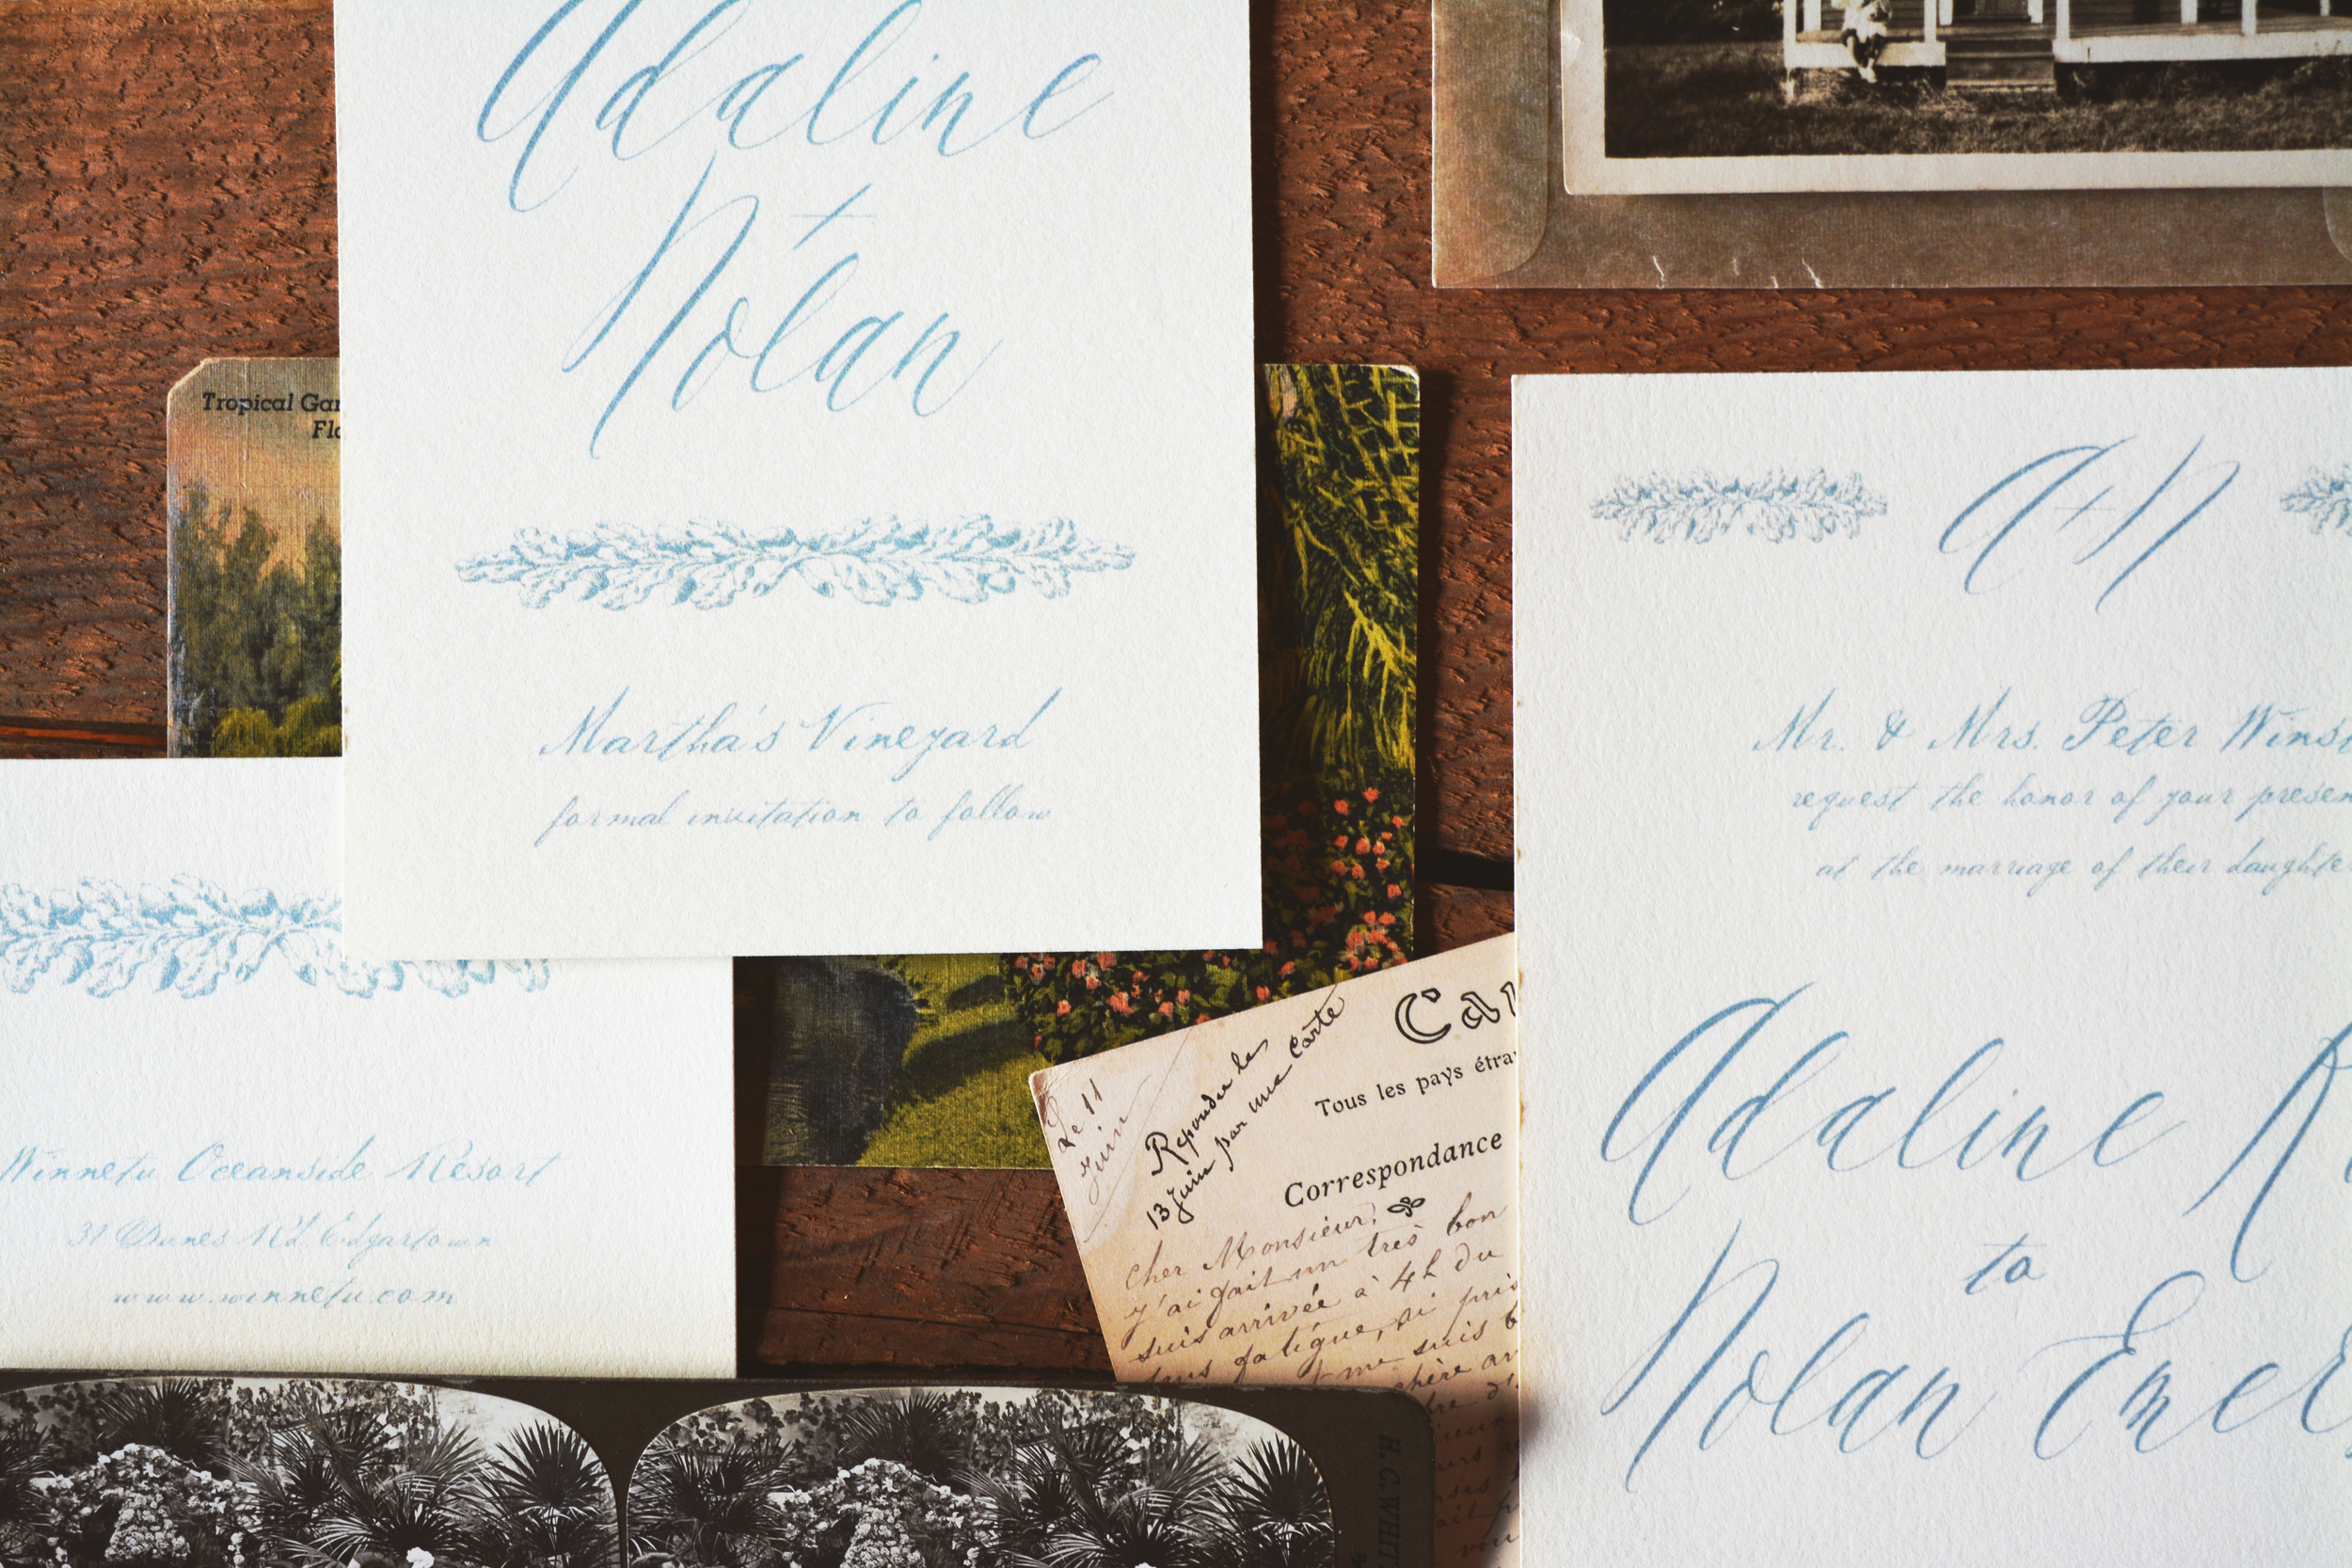 Adaline
+
Nolan
Martha's Vineyard
formal invitation to follow
Tropical Gar
Flo
Winnetu Oceanside Resort
31 Dunes Rd. Edgartown
www.winnetu.com
A+N
Mr. & Mrs. Peter Wins
request the honor of your presen
at the marriage of their daughte
Adaline R
to
Nolan
Le 11
juin
Repondu le
13 juin par une carte
Car
Tous les pays étra
Correspondance
cher Monsieur,
j'ai fait un très bon
suis arrivée à 4h du
sans fatigue, si pris
me suis
chère
H. C. WHIT